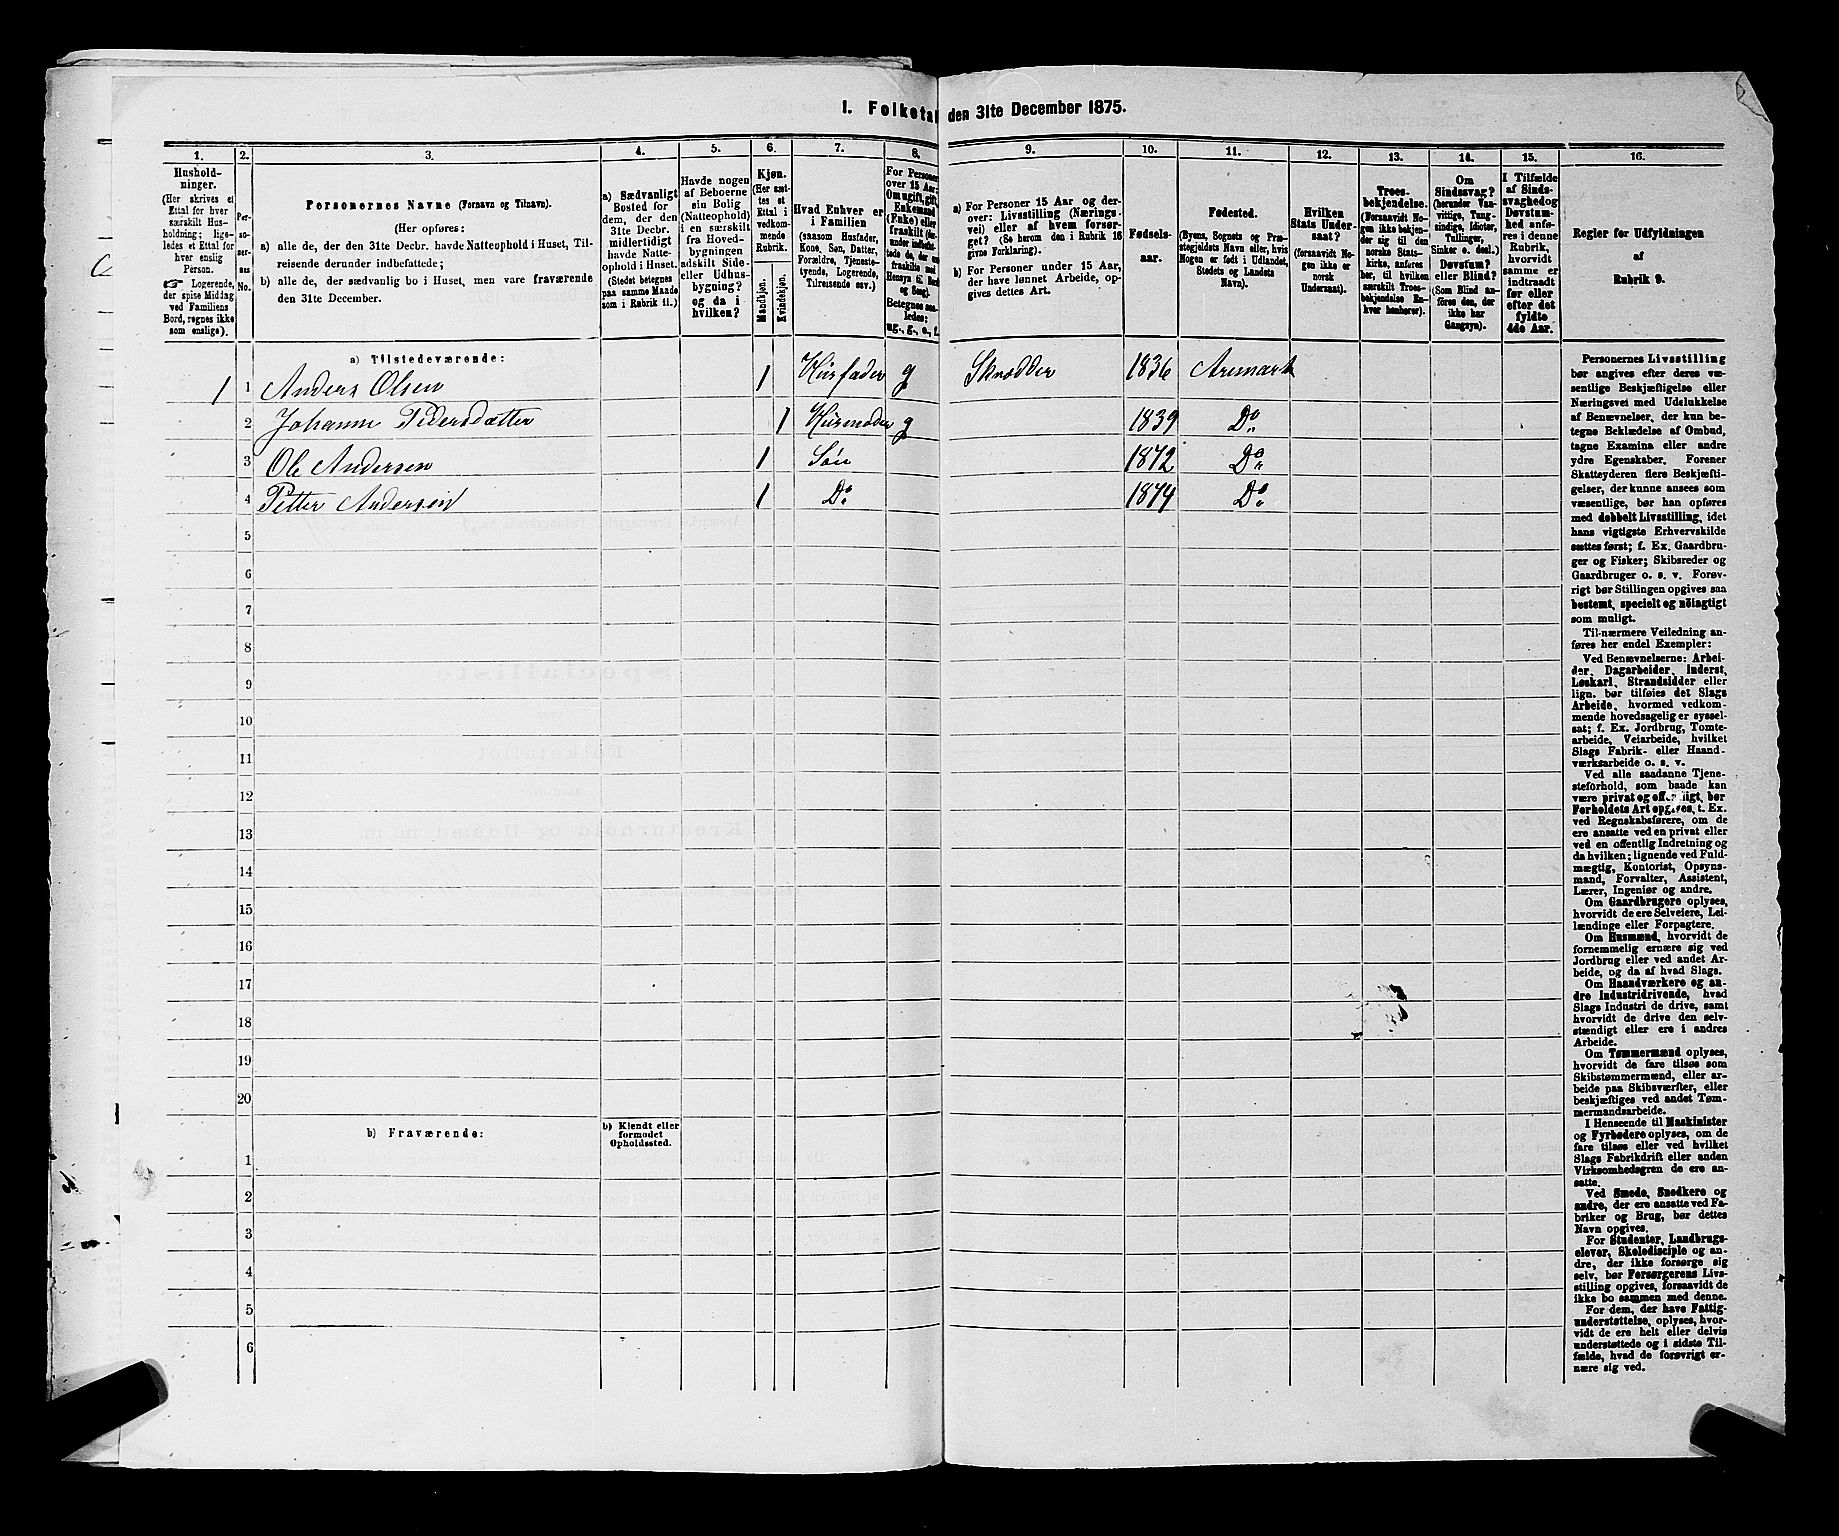 I. Folketal den 31te December 1875.
1.
2.
3.
4.
5.
6.
7.
8.
9.
10.
11.
12.
13.
14.
15.
16.
Hushold-
ninger.
(Her skrives et
Ettal for hver
særskilt Hus-
holdning; lige-
ledes et Ettal for
hver enslig
Person.
☞ Logerende,
der spise Middag
ved Familiens
Bord, regnes ikke
som enslige).
Per-
so-
ner-
nes
No.
Personernes Navne (Fornavn og Tilnavn).
(Her opføres:
a) alle de, der den 31te Decbr. havde Natteophold i Huset, Til-
reisende derunder indbefattede;
b) alle de, der sædvanlig bo i Huset, men vare fraværende
den 31te December.
a) Sædvanligt
Bosted for
dem, der den
31te Decbr.
midlertidigt
havde Natte-
ophold i Huset.
(Stedet betegnes
paa samme Maade
som i Rubrik 11.)
Havde nogen
af Beboerne
sin Bolig
(Natteophold)
i en særskilt
fra Hoved-
bygningen
adskilt Side-
eller Udhus-
bygning?
og da i
hvilken?
Kjøn.
(Her sæt-
tes et
Ettal i
vedkom-
mende
Rubrik.
Mandkjøn.
Kvindekjøn.
Hvad Enhver er
i Familien
(saasom Husfader,
Kone, Søn, Datter,
Forældre, Tjeneste-
tyende, Logerende,
Tilreisende osv.)
For Personer
over 15 Aar:
Om ugift, gift,
Enkemand
(Enke) eller
fraskilt
Betegnes saa-
ledes:
ug., g., e., f.
a) For Personer 15 Aar og der-
over: Livsstilling (Nærings-
vei) eller af hvem forsør-
get? (Se herom den i Rubrik 16
givne Forklaring).
b) For Personer under 15 Aar,
der have lønnet Arbeide, op-
gives dettes Art.
Fødsels-
aar.
Fødested.
(Byens, Sognets og Præ-
stegjeldets Navn eller, hvis
Nogen er født i Udlandet,
Stedets og Landets
Navn).
Hvilken
Stats Under-
saat?
(forsaavidt No-
gen ikke er
norsk
Undersaat).
Troes-
bekjendelse.
(Forsaavidt No-
gen ikke bekjen-
der sig til den
norske Stats-
kirke, anføres
her, til hvilken
særskilt Troes-
bekjendelse En-
hver henhører).
Om
Sindssvag?
(herunder Van-
vittige, Tung-
sindige, Idioter,
Tullinger,
Sinker o. desl.)
Døvstum?
eller Blind?
(Som Blind an-
føres den, der
ikke har
Gangsyn).
I Tilfælde
af Sinds-
svaghed og
Døvstum-
hed anfø-
res i denne
Rubrik,
hvorvidt
samme er
indtraadt
før eller
efter det
fyldte
4de Aar.
Regler for Udfyldningen
af
Rubrik 9.
a) Tilstedeværende:
1 1 Anders Olsen 1 Husfader g Skrædder 1836 Aremark
2 Johanne Pedersdatter 1 Husmoder g 1839 Do
3 Ole Andersen 1 Søn 1872 Do
4 Petter Andersen 1 Do 1874 Do
5
6
7
8
9
10
11
12
13
14
15
16
17
18
19
20
b) Fraværende:
b) Kjendt eller
formodet
Opholdssted.
1
2
3
4
5
6
Personernes Livsstilling
bør angives efter deres væ-
sentlige Beskjæftigelse eller
Næringsvei med Udelukkelse
af Benævnelser, der kun be-
tegne Beklædelse af Ombud,
tagne Examina eller andre
ydre Egenskaber. Forener
Skatteyderen flere Beskjæfti-
gelser, der kunne ansees som
væsentlige, bør han opføres
med dobbelt Livsstilling, idet
hans vigtigste Erhvervskilde
sættes først; f. Ex. Gaardbru-
ger og Fisker; Skibsreder og
Gaardbruger o. s. v. Forøv-
rigt bør Stillingen opgives saa
bestemt, specielt og nöiagtigt
som muligt.
Til nærmere Veiledning an-
føres her endel Exempler:
Ved Benævnelserne: Arbei-
der, Dagarbeider, Inderst,
Løskarl, Strandsidder eller
lign. bør tilføies det Slags
Arbeide, hvormed vedkom-
mende hovedsagelig er syssel-
sat; f. Ex. Jordbrug, Tomte-
arbeide, Veiarbeide, hvilket
Slags Fabrik- eller Haand-
værksarbeide o. s. v.
Ved alle saadanne Tjene-
steforhold, som baade kan
være privat og offentligt, bør
Forholdets Art opgives, f. Ex.
ved Regnskabsførere, om de
ere ansatte ved en privat eller
ved en offentlig Indretning og
da hvilken; lignende ved Fuld-
mægtig, Kontorist, Opsyns-
mand, Forvalter, Assistent,
Lærer, Ingeniør og andre.
Om Gaardbrugere oplyses,
hvorvidt de ere Selveiere, Lei-
lændinge eller Forpagtere.
Om Husmænd, hvorvidt de
fornemmelig ernære sig ved
Jordbrug eller ved andet Ar-
beide, og da af hvad Slags.
Om Haandværkere og an-
dre Industridrivende, hvad
Slags Industri de drive, samt
hvorvidt de drive den selv-
stændigt eller ere i andres
Arbeide.
Om Tømmermænd oplyses,
hvorvidt de fare tilsøs som
Skibstømmermænd, eller ar-
beide paa Skibsværfter, eller
beskjæftiges ved andet Tøm-
mermandsarbeide.
I Henseende til Maskinister
og Fyrbødere oplyses, om de
fare tilsøs eller ved hvilket
Slags Fabrikdrift eller anden
Virksomhedsgren de ere an-
satte.
Ved Smede, Snedkere og
andre, der ere ansatte ved Fa-
briker og Brug, bør dettes
Navn opgives.
For Studenter, Landbrugs-
elever, Skoledisciple og an-
dre, der ikke forsørge sig
selv, bør Forsørgerens Livs-
stilling opgives, forsaavidt de
ikke bo sammen med denne.
For dem, der have Fattig-
understøttelse, oplyses, hvor-
vidt de ere helt eller delvis
understøttede og i sidste Til-
fælde, hvad de forøvrigt er-
nære sig ved.